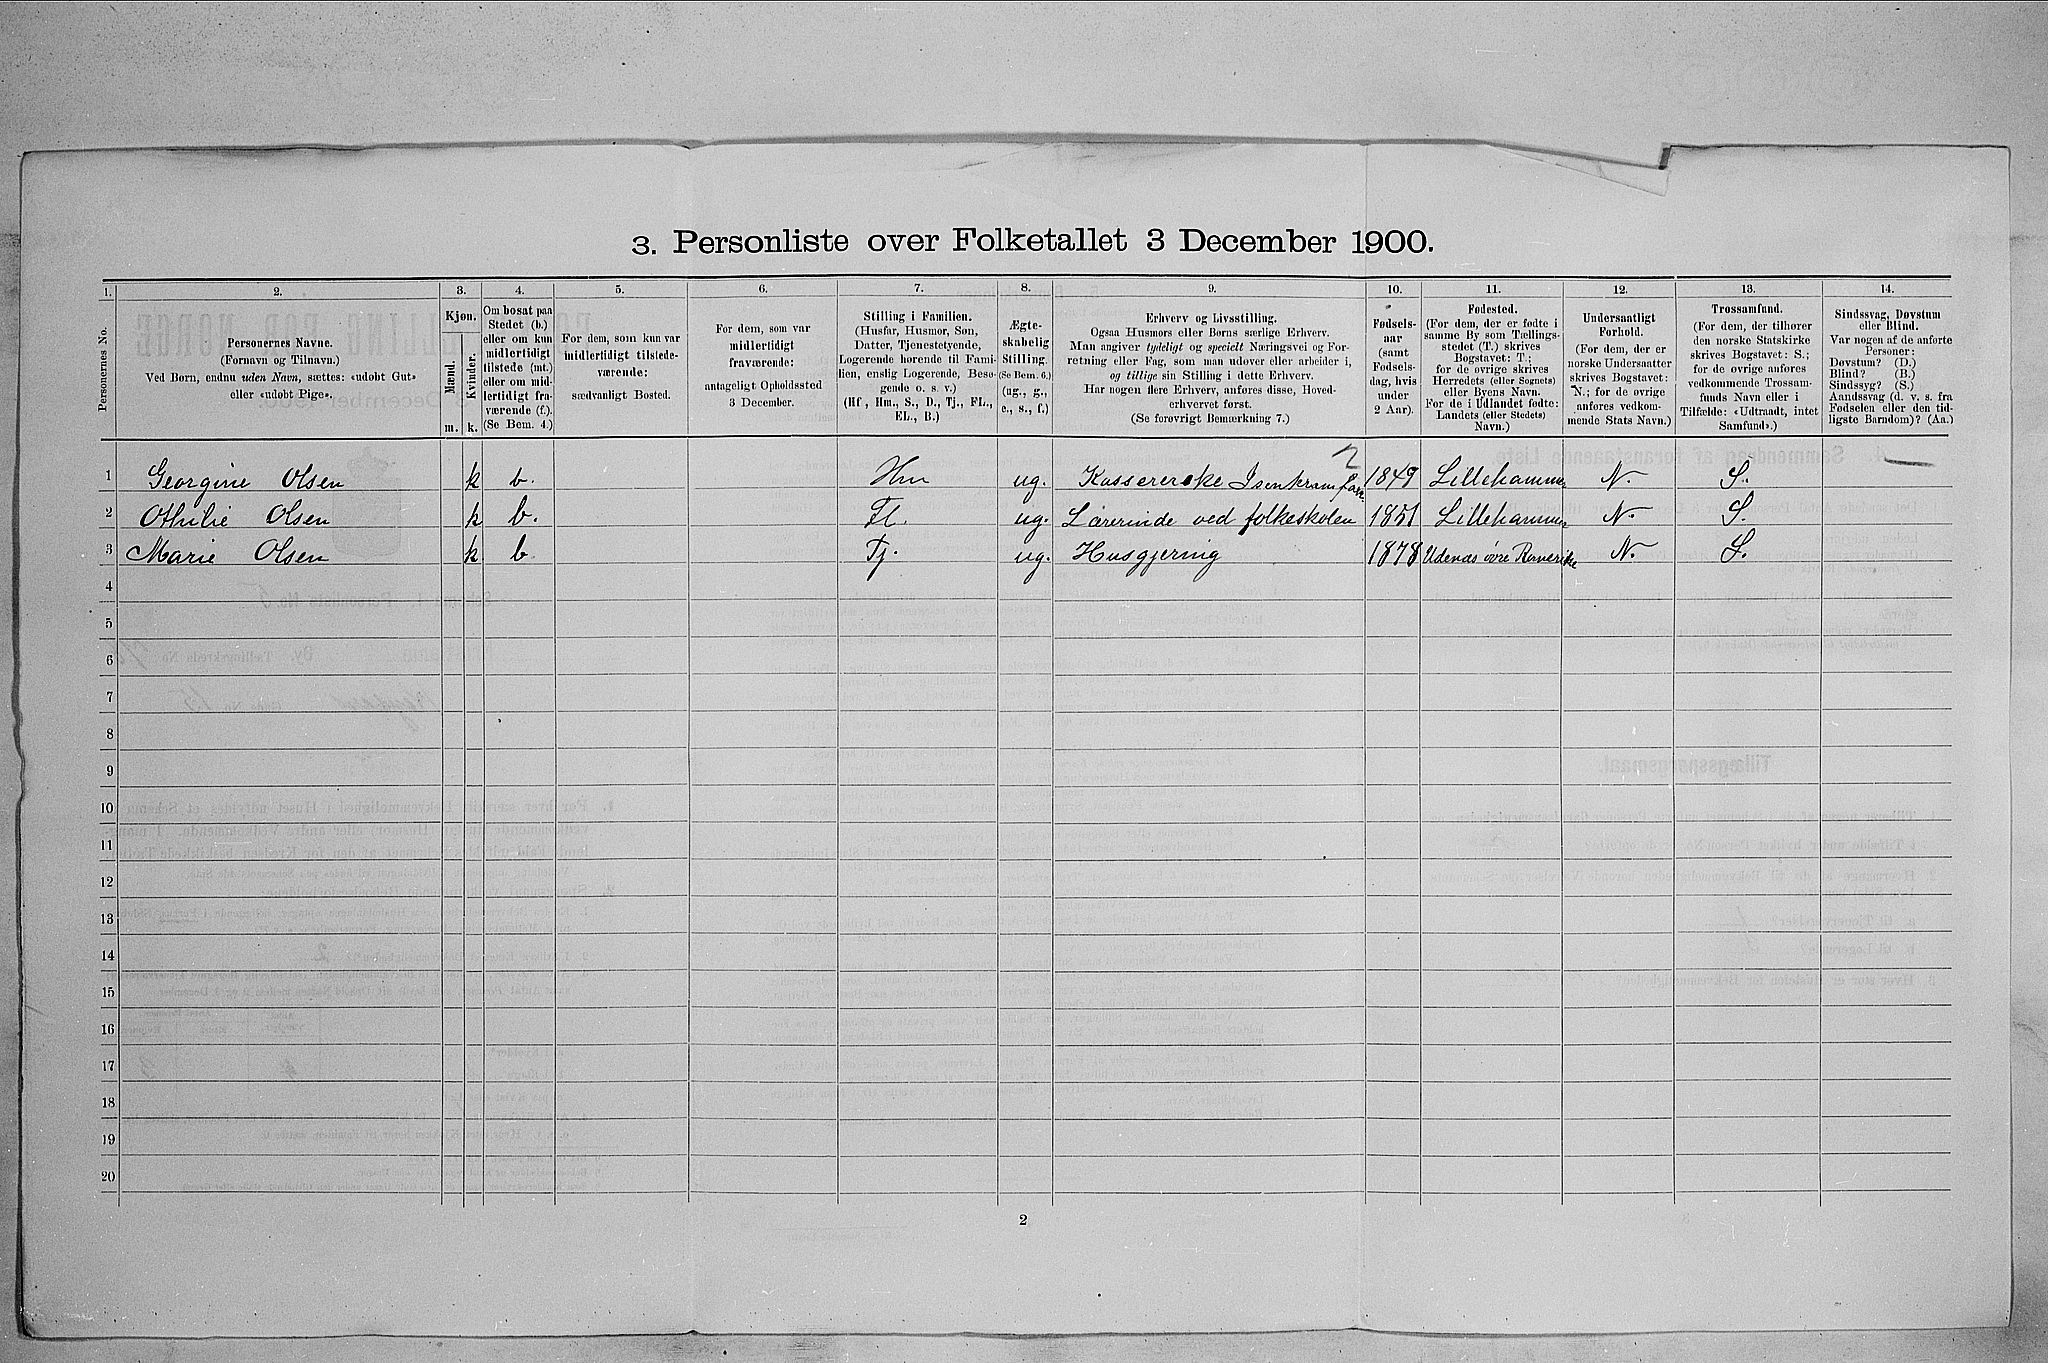 3. Personliste over Folketallet 3 December 1900.
1. 2. 3. 4. 5. 6. 7. 8. 9. 10. 11. 12. 13. 14.
Personernes No.
Personernes Navne.
(Fornavn og Tilnavn.)
Ved Børn, endnu uden Navn, sættes: «udøbt Gut»
eller «udøbt Pige».
Kjøn.
Mænd.
Kvinder.
m. k.
Om bosat paa
Stedet (b.)
eller om kun
midlertidigt
tilstede (mt.)
eller om mid-
lertidigt fra-
værende (f.).
(Se Bem. 4.)
For dem, som kun var
midlertidigt tilstede-
værende:
sædvanligt Bosted.
For dem, som var
midlertidigt
fraværende:
antageligt Opholdssted
3 December.
Stilling i Familien.
(Husfar, Husmor, Søn,
Datter, Tjenestetyende,
Logerende hørende til Fami-
lien, enslig Logerende, Besø-
gende o. s. v.)
(Hf., Hm., S., D., Tj., FL.,
EL., B.)
Ægte-
skabelig
Stilling.
(Se Bem. 6.)
(ug., g.,
e., s., f.)
Erhverv og Livsstilling.
Ogsaa Husmors eller Børns særlige Erhverv.
Man angiver tydeligt og specielt Næringsvei og For-
retning eller Fag, som man udøver eller arbeider i,
og tillige sin Stilling i dette Erhverv.
Har nogen flere Erhverv, anføres disse, Hoved-
erhvervet først.
(Se forøvrigt Bemærkning 7.)
Fødsels-
aar
(samt
Fødsels-
dag, hvis
under
2 Aar).
Fødested.
(For dem, der er fødte i
samme By som Tællings-
stedet (T.) skrives
Bogstavet: T.;
for de øvrige skrives
Herredets (eller Sognets)
eller Byens Navn.
For de i Udlandet fødte:
Landets (eller Stedets)
Navn.)
Undersaatligt
Forhold.
(For dem, der er
norske Undersaatter
skrives Bogstavet:
N.; for de øvrige
anføres vedkom-
mende Stats Navn.)
Trossamfund.
(For dem, der tilhører
den norske Statskirke
skrives Bogstavet: S.;
for de øvrige anføres
vedkommende Trossam-
funds Navn eller i
Tilfælde: «Udtraadt, intet
Samfund».)
Sindssvag, Døvstum
eller Blind.
Var nogen af de anførte
Personer:
Døvstum? (D.)
Blind? (B.)
Sindssyg? (S.)
Aandssvag (d. v. s. fra
Fødselen eller den tid-
ligste Barndom)? (Aa.)
1 Georgine Olsen k b. Hm ug. Kassererske Isenkramfork. 1849 Lillehammer N. S.
2 Othilie Olsen k b. Fl. ug. Lærerinde ved folkeskolen 1851 Lillehammer N. S.
3 Marie Olsen k b. Tj. ug. Husgjerning 1878 Udenæs øvre Romerike N. S.
4
5
6
7
8
9
10
11
12
13
14
15
16
17
18
19
20
2